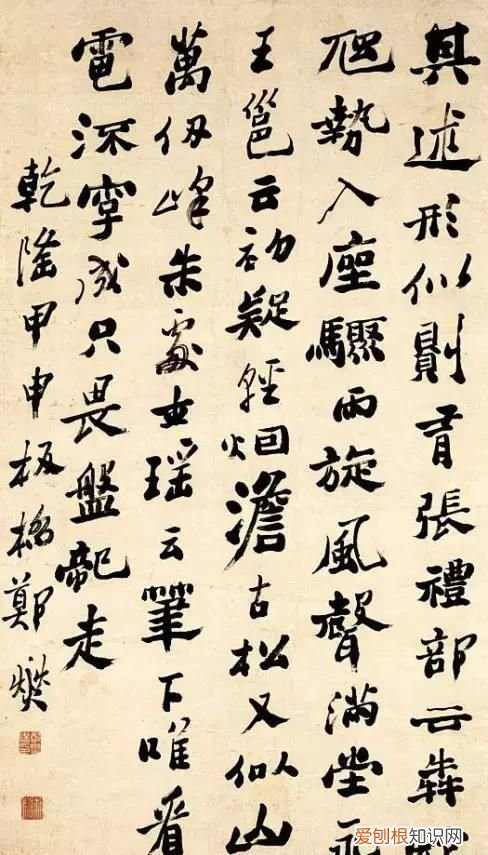 其述形似則有張禮部云犇
虺勢入座驟雨旋風聲滿堂永
王邕云初疑輕烟澹古松又似山
萬仞峰朱處士瑶云筆下唯看
電流字成只畏盤龍走
乾隆甲申板橋鄭燮
爱刨根知识网